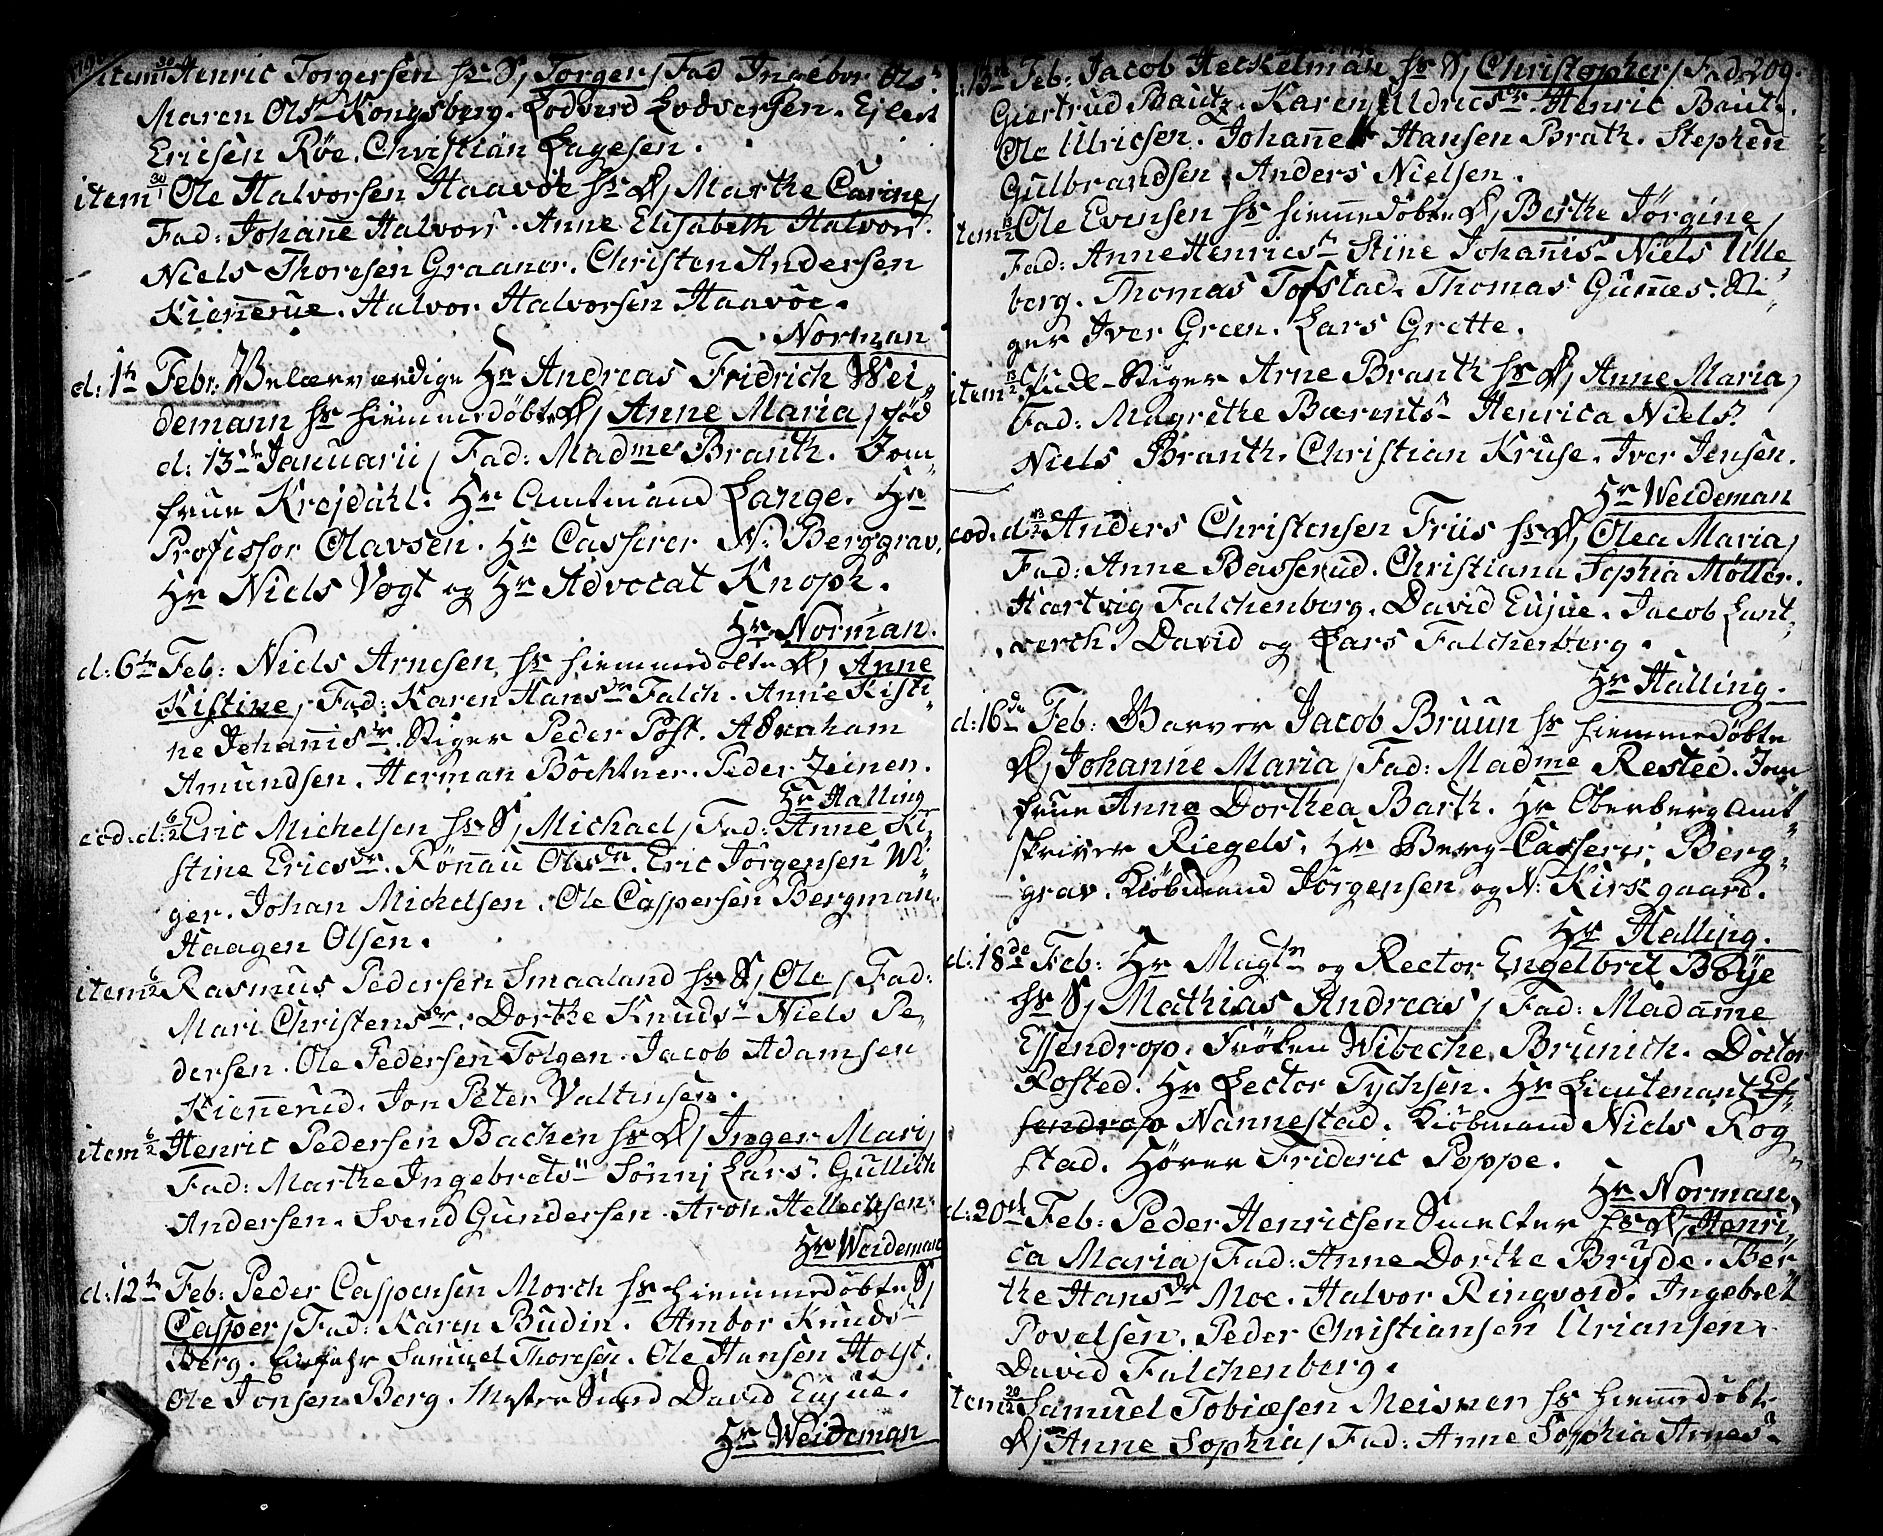 item 30/1 Henric Torgersen hs S, Torger / Fad Ingebor Ols
Maren Olsn Kongsberg. Lodverd Lodversen. Ejlert
Ericsen Røe. Christian Lagesen.
item 30/1 Ole Halvorsen Haavoe hs D, Marthe Carine /
Fad: Johañe Halvors. Anne Elisabeth Halvors.
Niels Thoresen Graaner. Christen Andersen
Kieñerue. Halvor Halvorsen Haavoe.
Norman
d: 1th Febr: Velærværdige Hr Andreas Fridrich Wei,,
demann hs hiemmedøbte D, Anne Maria / fød
d: 13de Januarii / Fad: Madme Branth. Jom,,
frue Krejdahl. Hr Amtmand Lange. Hr
Professor Olavsen. Hr Casserer N. Berggrav,
Hr Niels Vogt og Hr Advocat Knoph.
Hr Norman.
d: 6te Feb: Niels Arnesen hs hiemmedøbte D, Anne
Kistine / Fad: Karen Hansdr Falch. Anne Kisti,,
ne Johannisdr. Stiger Peder Post. Abraham
Amundsen. Herman Böchtner. Peder Jeinen.
Hr Halling
eod. d: 6/2 Eric Michelsen hs S, Michael / Fad: Anne Ki,,
stine Ericsdr. Rönnau Olsdr. Eric Jörgensen Wi,,
ger. Johan Michelsen. Ole Caspersen Bergman.
Haagen Olsen.
item 6/2 Rasmus Pedersen Smaaland hs S, Ole / Fad:
Mari Christensdr. Dorthe Knudsn Niels Pe,,
dersen. Ole Pedersen Tolgen. Jacob Adamsen
Kieñerud. Jon Peter Valtinsen.
item 6/2 Henric Pedersen Bachen hs D, Inger Mari /
Fad: Marthe Ingebretsn Sönnj Larsn. Gullich
Andersen. Svend Gundersen. Aron Hellechsen.
Hr Weideman
d: 12te Feb: Peder Caspersen Morch hs hiemmedøbte S,
Casper / Fad: Karen Budin. Ambor Knuds
Berg. Samuel Thoresen. Ole Hansen Holst.
Ole Jonsen Berg. David Eujue.
Hr Weideman
209.
d: 13de Feb: Jacob Heckelman hs S, Christopher / Fad:
Giertrud Bautz. Karen Uldricsdr. Henric Bautz.
Ole Ulricsen. Johannes Hansen Brath. Stephen
Gulbrandsen. Anders Nielsen.
item 13/2 Ole Evensen hs hiemmedøbte D, Berthe Jörgine /
Fad: Anne Henricsn Stine Johañisn Niels Ulle,,
berg. Thomas Tofstad. Thomas Guñes. Sti,,
ger Iver Green. Lars Grette.
item 13/2 Stiger Arne Branth hs D, Anne Maria /
Fad: Magrethe Bærentsn Henrica Nielsn.
Niels Branth. Christian Kruse. Iver Jensen.
Hr Weideman
eod. d: 13/2 Anders Christensen Friis hs D, Olea Maria /
Fad: Anne Basserud. Christiana Sophia Møller.
Hartvig Falchenberg. David Eujue. Jacob Lant,,
verch. David og Lars Falchenberg.
Hr Halling.
d: 16de Feb: Garver Jacob Bruun hs hiemmedøbte
D, Johanne Maria / Fad: Madme Rested. Jom
frue Anne Dorthea Barth. Hr Oberberg Amt,,
skriver Riegels. Hr Berg-Casserer Berg,,
grav. Kiøbmand Jörgensen og N. Kirsgaard.
Hr Halling.
d: 18de Feb: Hr Magtr og Rector Engelbret Boye
hs S, Mathias Andreas / Fad: Madame
Essendrop. Fröken Wibeche Brunich. Doctor
Rosted. Hr Lector Tychsen. Hr Lieutenant Es,,
sendrop Nannestad. Kiöbmand Niels Rog
stad. Hörer Frideric Poppe.
Hr Norman
d: 20de Feb: Peder Henricsen Smelter hs D, Henri,,
ca Maria / Fad: Anne Dorthe Bryde. Ber
the Hansdr Moe. Halvor Ringvold. Ingebret
Povelsen. Peder Christiansen Uriansen.
David Falchenberg.
item 20/2 Samuel Tobiæsen Meisner hs hiemmedøbte
D, Anne Sophia / Fad: Anne Sophia Arnes